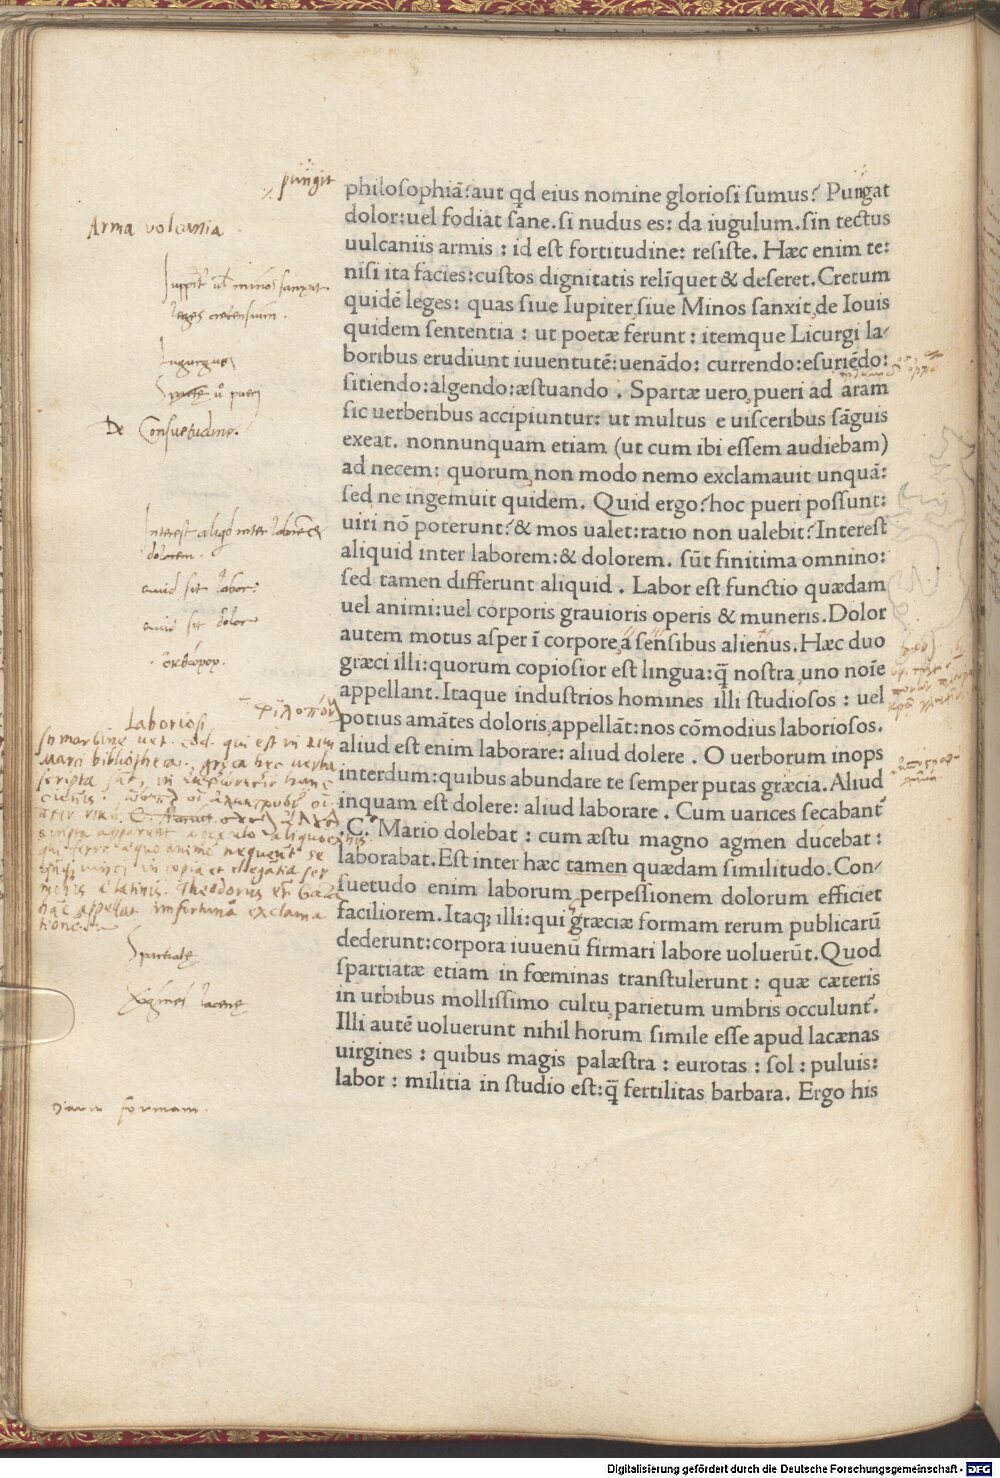 pungit
philosophiā:aut qd eius nomine gloriosi sumus? Pungat
dolor:uel fodiat sane.si nudus es: da iugulum.sin tectus
uulcaniis armis : id est fortitudine: resiste. Hæc enim te:
nisi ita facies:custos dignitatis relīquet & deseret.Cretum
quidē leges: quas siue Iupiter,siue Minos sanxit,de Iouis
quidem sententia : ut poetæ ferunt : itemque Licurgi la/
boribus erudiunt iuuentutē:uenādo: currendo:esuriēdo:
sitiendo:algendo:æstuando . Spartæ uero,pueri ad aram
sic uerberibus accipiuntur: ut multus e uisceribus sāguis
exeat. nonnunquam etiam (ut cum ibi essem audiebam)
ad necem: quorum,non modo nemo exclamauit unquā:
sed ne ingemuit quidem. Quid ergo?hoc pueri possunt:
uiri nō poterunt?& mos ualet:ratio non ualebit?Interest
aliquid inter laborem:& dolorem. sūt finitima omnino:
sed tamen differunt aliquid . Labor est functio quædam
uel animi:uel corporis grauioris operis & muneris.Dolor
autem motus asper ī corpore,a sensibus alienus.Hæc duo
græci illi:quorum copiosior est lingua:q̄ nostra,uno noīe
appellant.Itaque industrios homines illi studiosos : uel
potius amātes doloris,appellāt:nos cōmodius laboriosos.
aliud est enim laborare: aliud dolere . O uerborum inops
interdum:quibus abundare te semper putas græcia.Aliud
inquam est dolere: aliud laborare . Cum uarices secabant̄
.C. Mario dolebat : cum æstu magno agmen ducebat :
laborabat.Est inter hæc tamen quædam similitudo. Con/
suetudo enim laborum,perpessionem dolorum efficiet
faciliorem.Itaq; illi:qui græciæ formam rerum publicarū
dederunt:corpora iuuenū firmari labore uoluerūt.Quod
spartiatæ etiam in fœminas transtulerunt : quæ cæteris
in urbibus mollissimo cultu,parietum umbris occulunt̄.
Illi autē uoluerunt nihil horum simile esse apud lacænas
uirgines : quibus magis palæstra : eurotas : sol : puluis:
labor : militia in studio est:q̄ fertilitas barbara. Ergo his
Arma volcania
leges cretensium.
De Consuetudine.
dolorem.
quid sit labor:
quid sit dolor
Φιλοπόν
Laboriosi
Spartiatę
Digitalisierung gefördert durch die Deutsche Forschungsgemeinschaft - DFG